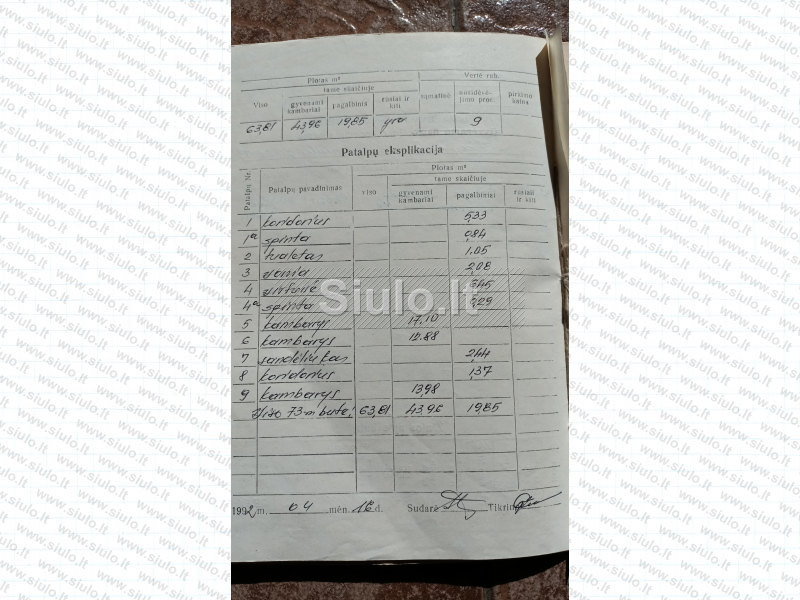 Plotas m² Vertė rub.
Viso tame skaičiuje
gyvenami kambariai pagalbinis rūsiai ir kiti sąmatinė nusidėvėjimo proc. pirkimo kaina
63,81 43,96 19,85 yra 9
Patalpų eksplikacija
Patalpų Nr. Patalpų pavadinimas Plotas m²
viso tame skaičiuje
gyvenami kambariai pagalbiniai rūsiai ir kiti
1 koridorius 5,33
1a spinta 0,84
2 tualetas 1,05
3 vonia 2,08
4 virtuvė 6,45
4a spinta 0,29
5 kambarys 17,10
6 kambarys 12.88
7 sandėliukas 2,44
8 koridorius 1,37
9 kambarys 13,98
Viso 73-m bute: 63,81 43,96 19,85
Siulo.lt
1992 m. 04 mėn. 16 d. Sudarė Tikrino
www.siulo.lt